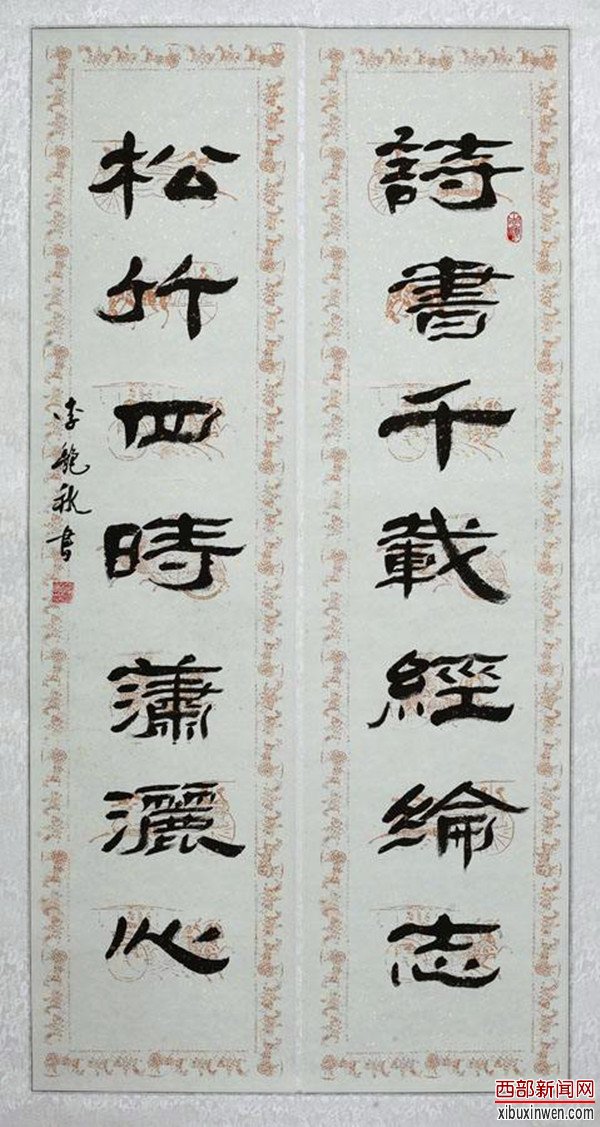 詩書千載經綸志
松竹四時瀟灑心
李艳秋書
西部新闻网
xibuxinwen.com